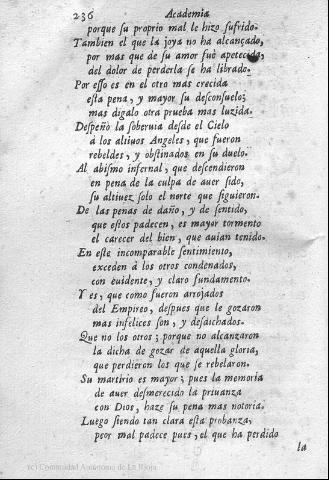 236 Academia
porque su proprio mal le hizo sufrido.
Tambien el que la joya no ha alcançado,
por mas que de su amor fuè apetecida,
del dolor de perderla se ha librado.
Por esso es en el otro mas crecida
esta pena, y mayor su desconsuelo;
mas digalo otra prueba mas luzida.
Despeñò la soberuia desde el Cielo
à los altiuos Angeles, que fueron
rebeldes, y obstinados en su duelo.
Al abismo infernal, que descendieron
en pena de la culpa de auer sido,
su altiuez solo el norte que siguieron.
De las penas de daño, y de sentido,
que estos padecen, es mayor tormento
el carecer del bien, que auian tenido.
En este incomparable sentimiento,
exceden à los otros condenados,
con euidente, y claro fundamento.
Y es, que como fueron arrojados
del Empireo, despues que le gozaron
mas infelices son, y desdichados.
Que no los otros; porque no alcanzaron
la dicha de gozar de aquella gloria,
que perdieron los que se rebelaron.
Su martirio es mayor; pues la memoria
de auer desmerecido la priuanza
con Dios, haze su pena mas notoria.
Luego siendo tan clara esta probanza,
peor mal padece pues, el que ha perdido
la
(c) Comunidad Autónoma de La Rioja